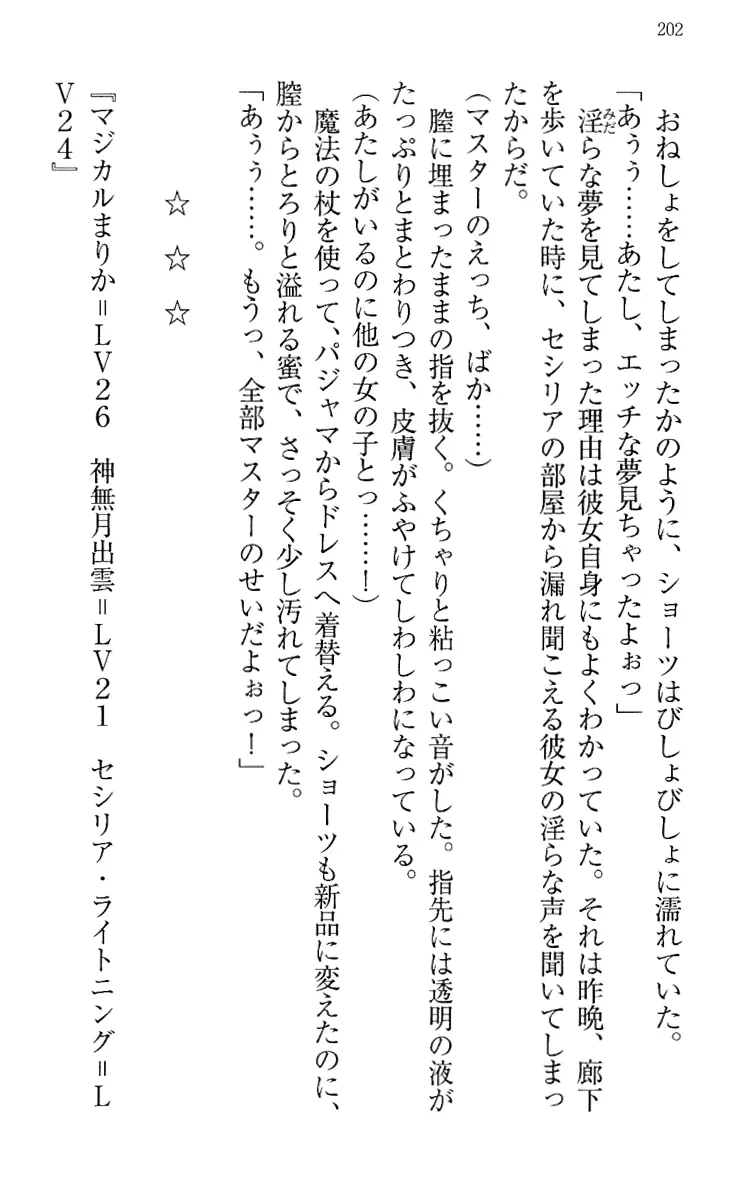 202
おねしょをしてしまったかのように、ショーツはびしょびしょに濡れていた。
「あぅぅ……あたし、エッチな夢見ちゃったよぉっ」
淫らな夢を見てしまった理由は彼女自身にもよくわかっていた。それは昨晩、廊下
を歩いていた時に、セシリアの部屋から漏れ聞こえる彼女の淫らな声を聞いてしまっ
たからだ。
(マスターのえっち、ばか……)
膣に埋まったままの指を抜く。くちゃりと粘っこい音がした。指先には透明の液が
たっぷりとまとわりつき、皮膚がふやけてしわしわになっている。
(あたしがいるのに他の女の子とっ……！)
魔法の杖を使って、パジャマからドレスへ着替える。ショーツも新品に変えたのに、
膣からとろりと溢れる蜜で、さっそく少し汚れてしまった。
「あぅぅ……。もうっ、全部マスターのせいだよぉっ！」
☆ ☆ ☆
『マジカルまりか＝ＬＶ２６　神無月出雲＝ＬＶ２１　セシリア・ライトニング＝Ｌ
Ｖ２４』